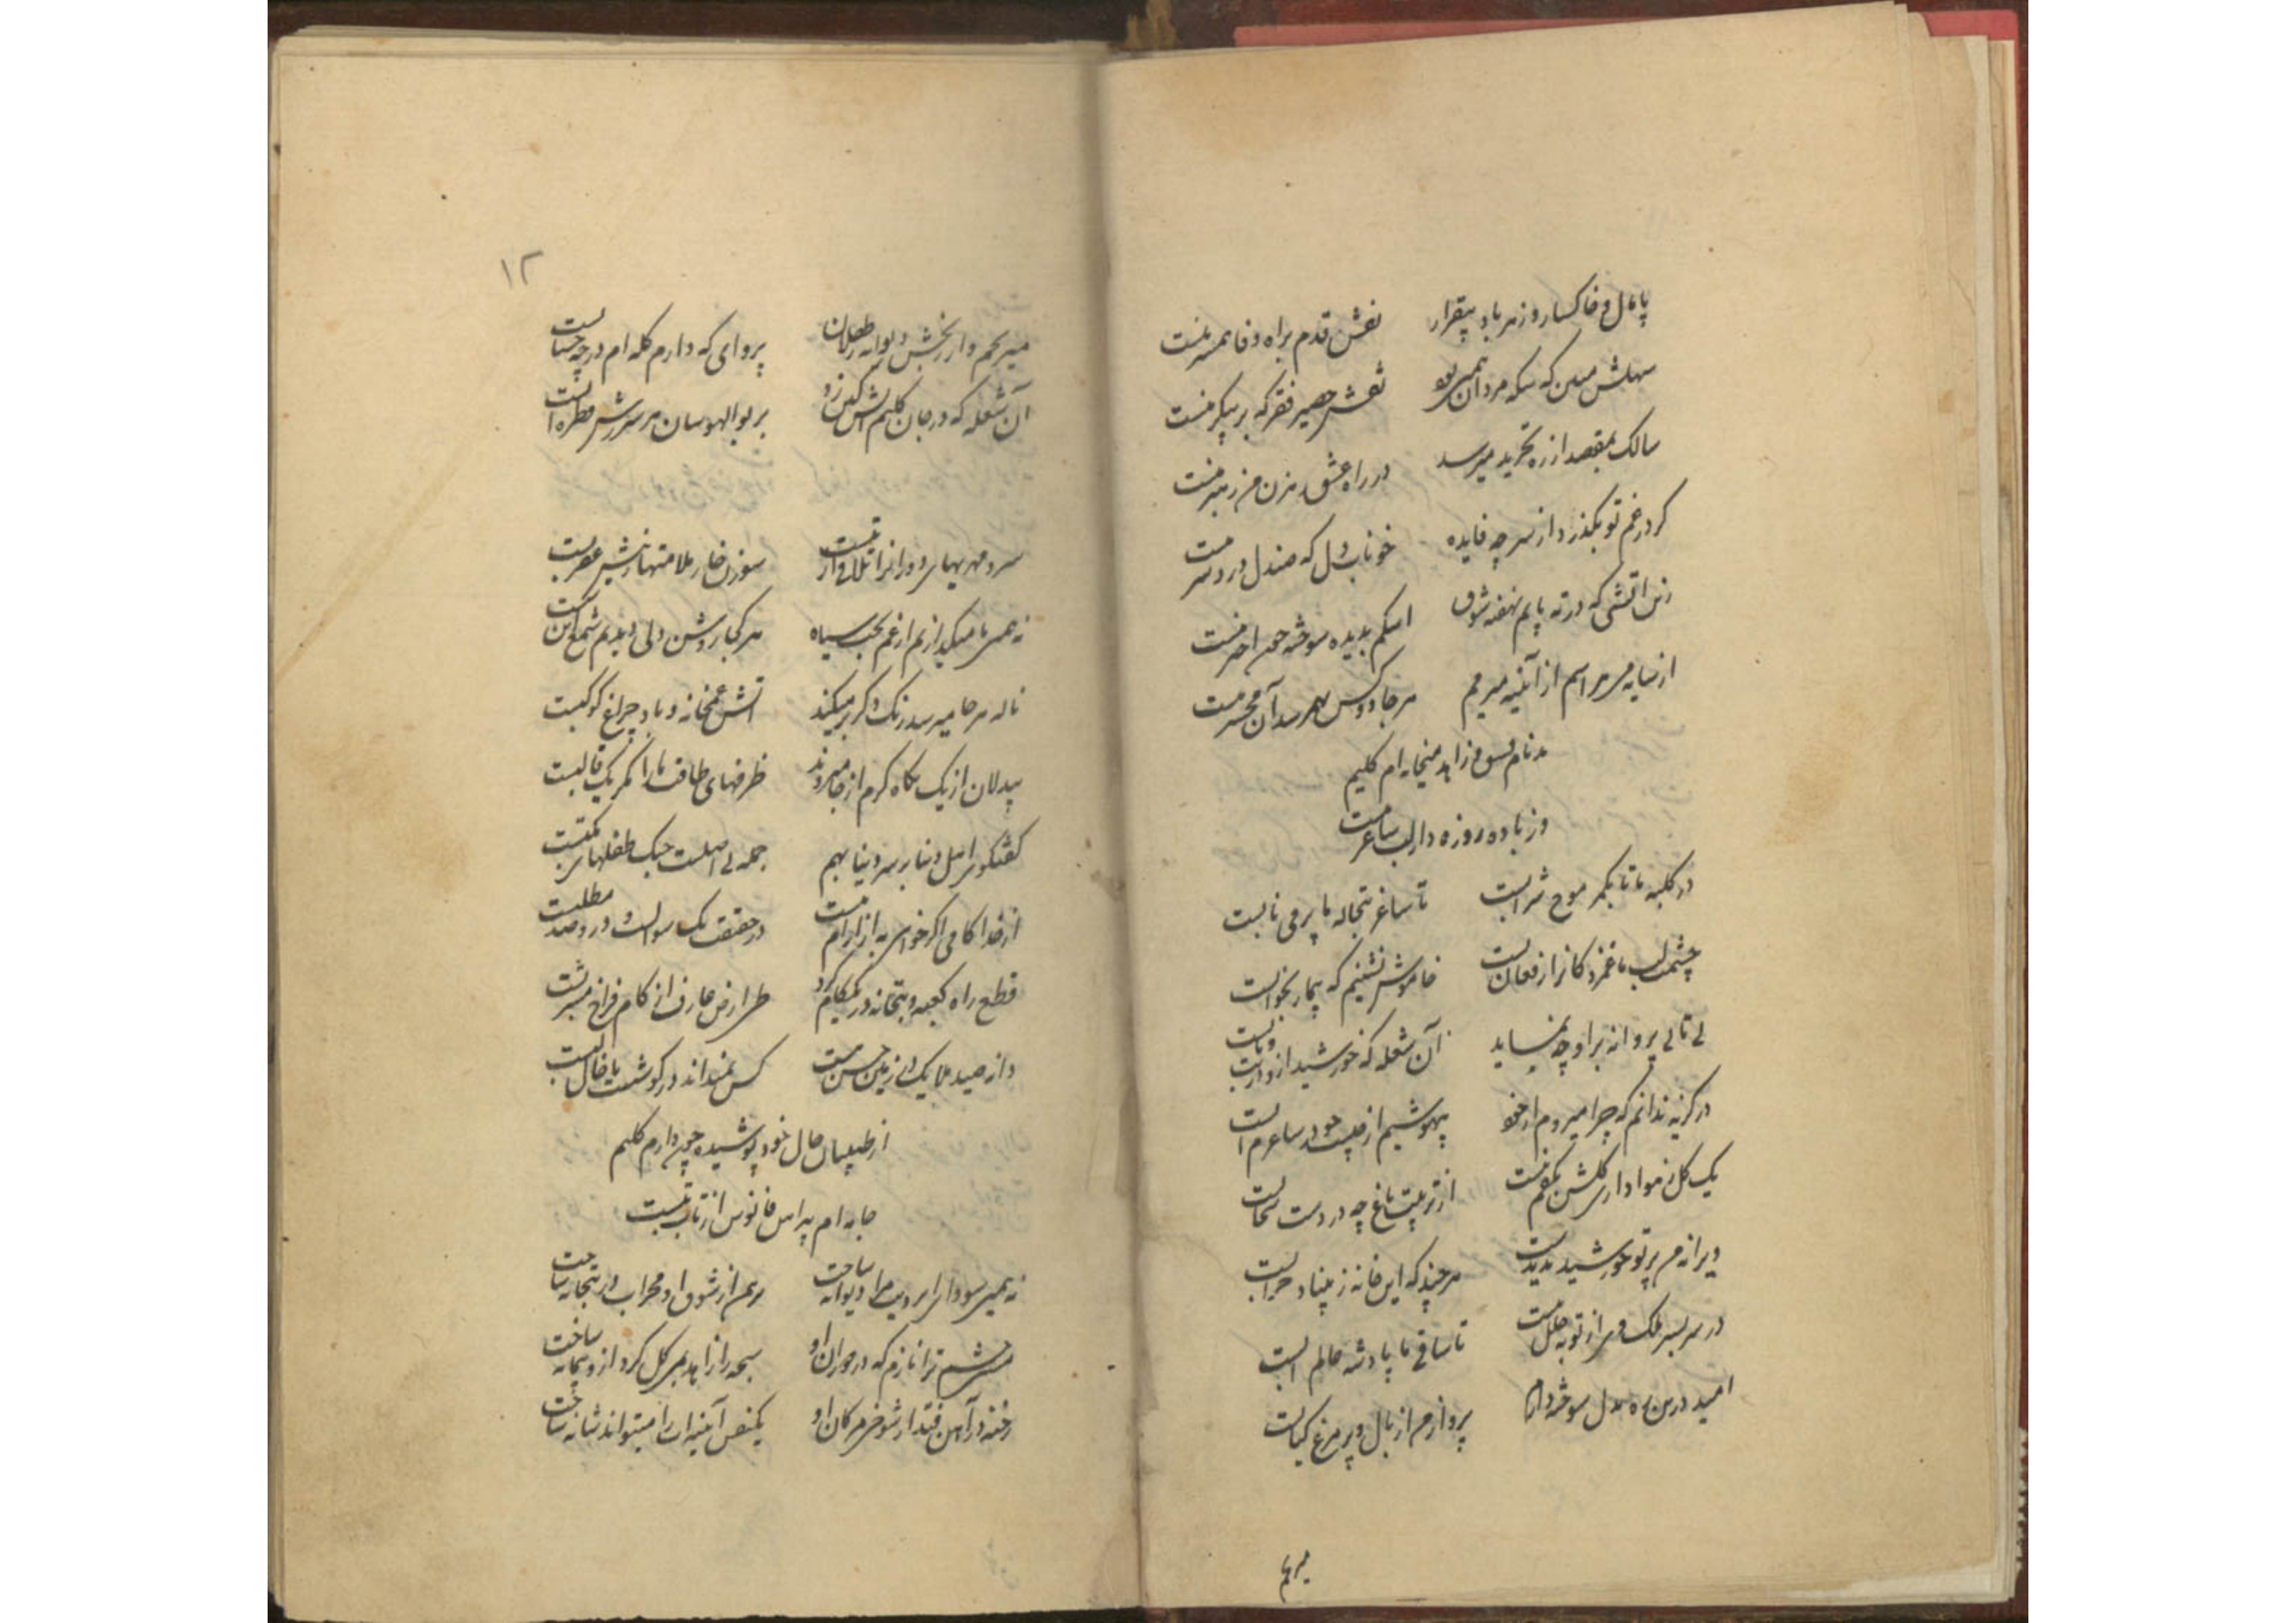 پامال و خاکسار و زهر باد بیقرار
نقش قدم براه وفا همسر منست
سهلش مبین که سکه مردان همین بود
نقش حصیر فقر که بر پیکر منست
سالک بمقصد از ره تجرید میرسد
در راه عشق رهزن من رهبر منست
کر درغم تو بکذرد از سر چه فایده
خوناب دل که صندل دردسر منست
زین اتشی که در ته پایم نهفته شوق
اشکم بدیده سوخته چون اخکر منست
از سایه در هراسم از آینه میرمم
هرجا دو کس بهم رسد آن محشر منست
بدنام فسق زاهد میخانه ام کلیم
وز باده روزه دار لب ساغر منست
در کلبه ما تا بکمر موج شرابست
تا ساغر تبخاله ما پر می نابست
چشمت لب ما غمزدکانرا ز فغان بست
خاموش نشینیم که بیمار بخوابست
بی تابی پروانه بر او چه نماید
آن شعله که خورشید ازو در تب و تابست
در کریه ندانم که چرا میروم از خود
بیهوشیم از چیست چو در ساغرم آبست
یک کل ز هوا داری کلشن بکفم نیست
از تربیت باغ چه در دست سحابست
ویرانه من پرتو خورشید ندیدست
هر چند که این خانه ز بنیاد خرابست
در سر بسر ملک وی از توبه خلل نیست
تا ساقی ما پادشه عالم آبست
امید درین ره بدل سوخته دارم
پروازم از بال و پر مرغ کبابست
میرنجم
۱۲
میرنجم و از رنجش دیوانه و طفلان
پروای که دارم کله ام در چه حسابست
آن شعله که در جان کلیم آتش کین زد
بر بوالهوسان هر شررش قطره آبست
سرد مهریهای دورانرا تلافی از تبست
سوزن خار ملامتها ز نیش عقربست
نه همین ما میکدازیم از غم بخت سیاه
هر کجا روشن دلی دیدیم شمع این شبست
ناله هر جا میرسد رنک دکر بر میکند
آتش غمخانه و باد چراغ کوکبست
بیدلان از یک نکاه کرم از جا میروند
ظرفهای طاقت ما را مکر یک قالبست
کفتکوی اهل دنیا بر سر دنیا بهم
جمله بی اصلست جنک طفلهای مکتبست
از خدا کامی اکر خواهی به از آرام نیست
در حقیقت یک سوالست و درو صد مطلبست
قطع راه کعبه و بتخانه در یکدم کرد
طی ارض عارف از کام فراخ مشربست
دانه صید ملایک از زمین حسن تست
کس نمیداند در کوشت یا خال لبست
از طبیبان حال خود پوشیده چون دارم کلیم
جامه ام پیراهن فانوس از تاب تبست
نه همین سودای ابرویت مرا دیوانه ساخت
برهمن از شوق او محراب در بتخانه ساخت
چشم ترا نازم که در دوران او
سبحه را زاهد بمی کل کرد ازو پیمانه ساخت
رخنه در آهن فتد از شوخی مژکان او
یکنفس آیینه ات را میتواند شانه ساخت